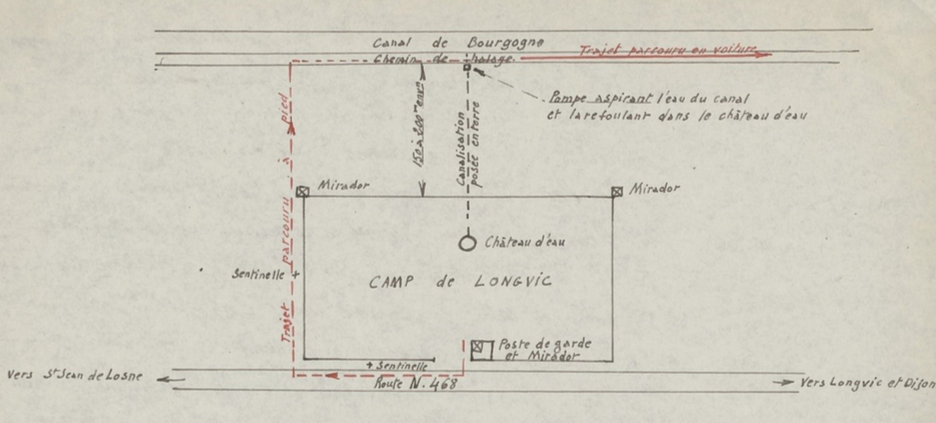 Canal de Bourgogne
Trajet parcouru en voiture
Chemin de halage.
Pompe aspirant l'eau du canal
et la refoulant dans le château d'eau
Trajet parcouru à pied
150 à 200m env.
Canalisation
posée en terre
Mirador
Mirador
Château d'eau
Sentinelle +
CAMP de LONGVIC
Poste de garde
et Mirador
+ Sentinelle
Vers St Jean de Losne
Route N. 468
Vers Longvic et Dijon